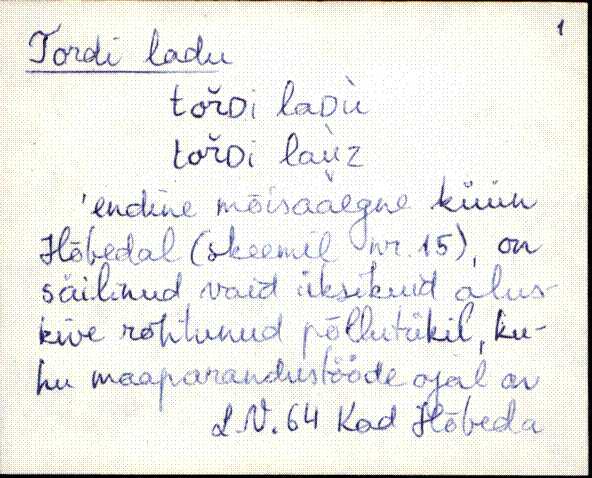 1
Tordi ladu
tořDi laDù
tořDi laùz
'endine mõisaaegne küün
Hõbedal (skeemil nr. 15), on
säilinud vaid üksikuid alus-
kive rohtunud põllutükil, ku-
hu maaparandustööde ajal on
L.N. 64 Kad Hõbeda